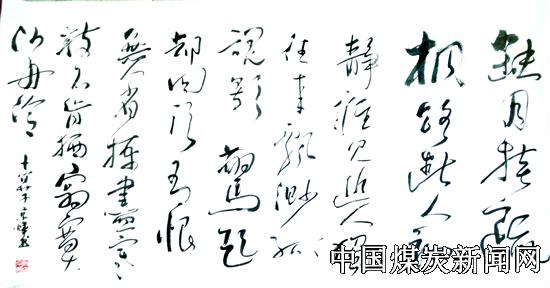 缺月挂疏
桐漏断人初
静谁见幽人独
往来飘渺孤
鸿影驚起
却回头有恨
無人省揀盡寒
枝不肯栖寂寞
沙洲冷
中国煤炭新闻网